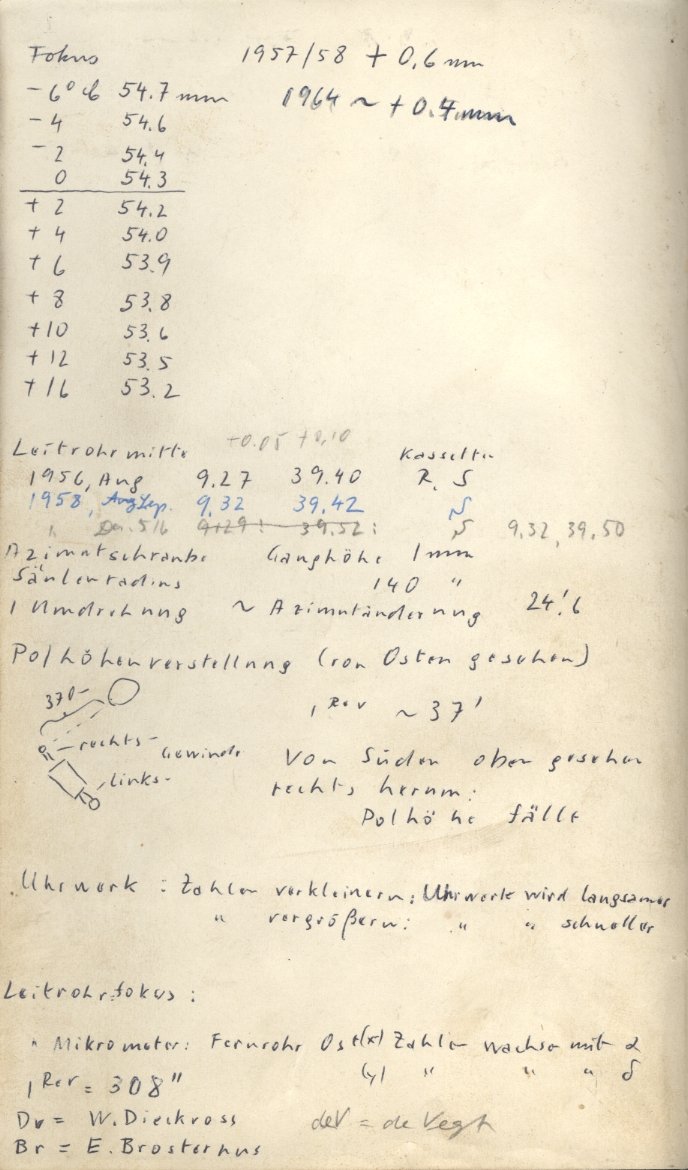 Fokus 1957/58 + 0,6 mm
- 6° 54.7 mm 1964 ~ + 0.4 mm
- 4 54.6
- 2 54.4
0 54.3
+ 2 54.2
+ 4 54.0
+ 6 53.9
+ 8 53.8
+ 10 53.6
+ 12 53.5
+ 16 53.2
Leitrohrmitte +0.05 +0,10 Kassette
1956, Aug 9.27 39.40 R, S
1958, Aug Sep. 9,32 39,42 S
" 5/6 9,29: 39,52: S 9,32, 39,50
Azimutschraube Ganghöhe 1 mm
Säulenradius 140 "
1 Umdrehung ~ Azimutänderung 24!6
Polhöhenverstellung (von Osten gesehen)
370-
1 Rev ~ 37'
rechts- Gewinde
links-
Von Süden oben gesehen
rechts herum:
Polhöhe fällt
Uhrwerk: Zahlen verkleinern: Uhrwerk wird langsamer
" vergrößern: " " schneller
Leitrohrfokus:
" Mikrometer: Fernrohr Ost (x) Zahlen wachsen mit α
1 Rev = 308" (y) " " " δ
Dv = W. Dieckvoss deV = de Vegt
Br = E. Brosterhus